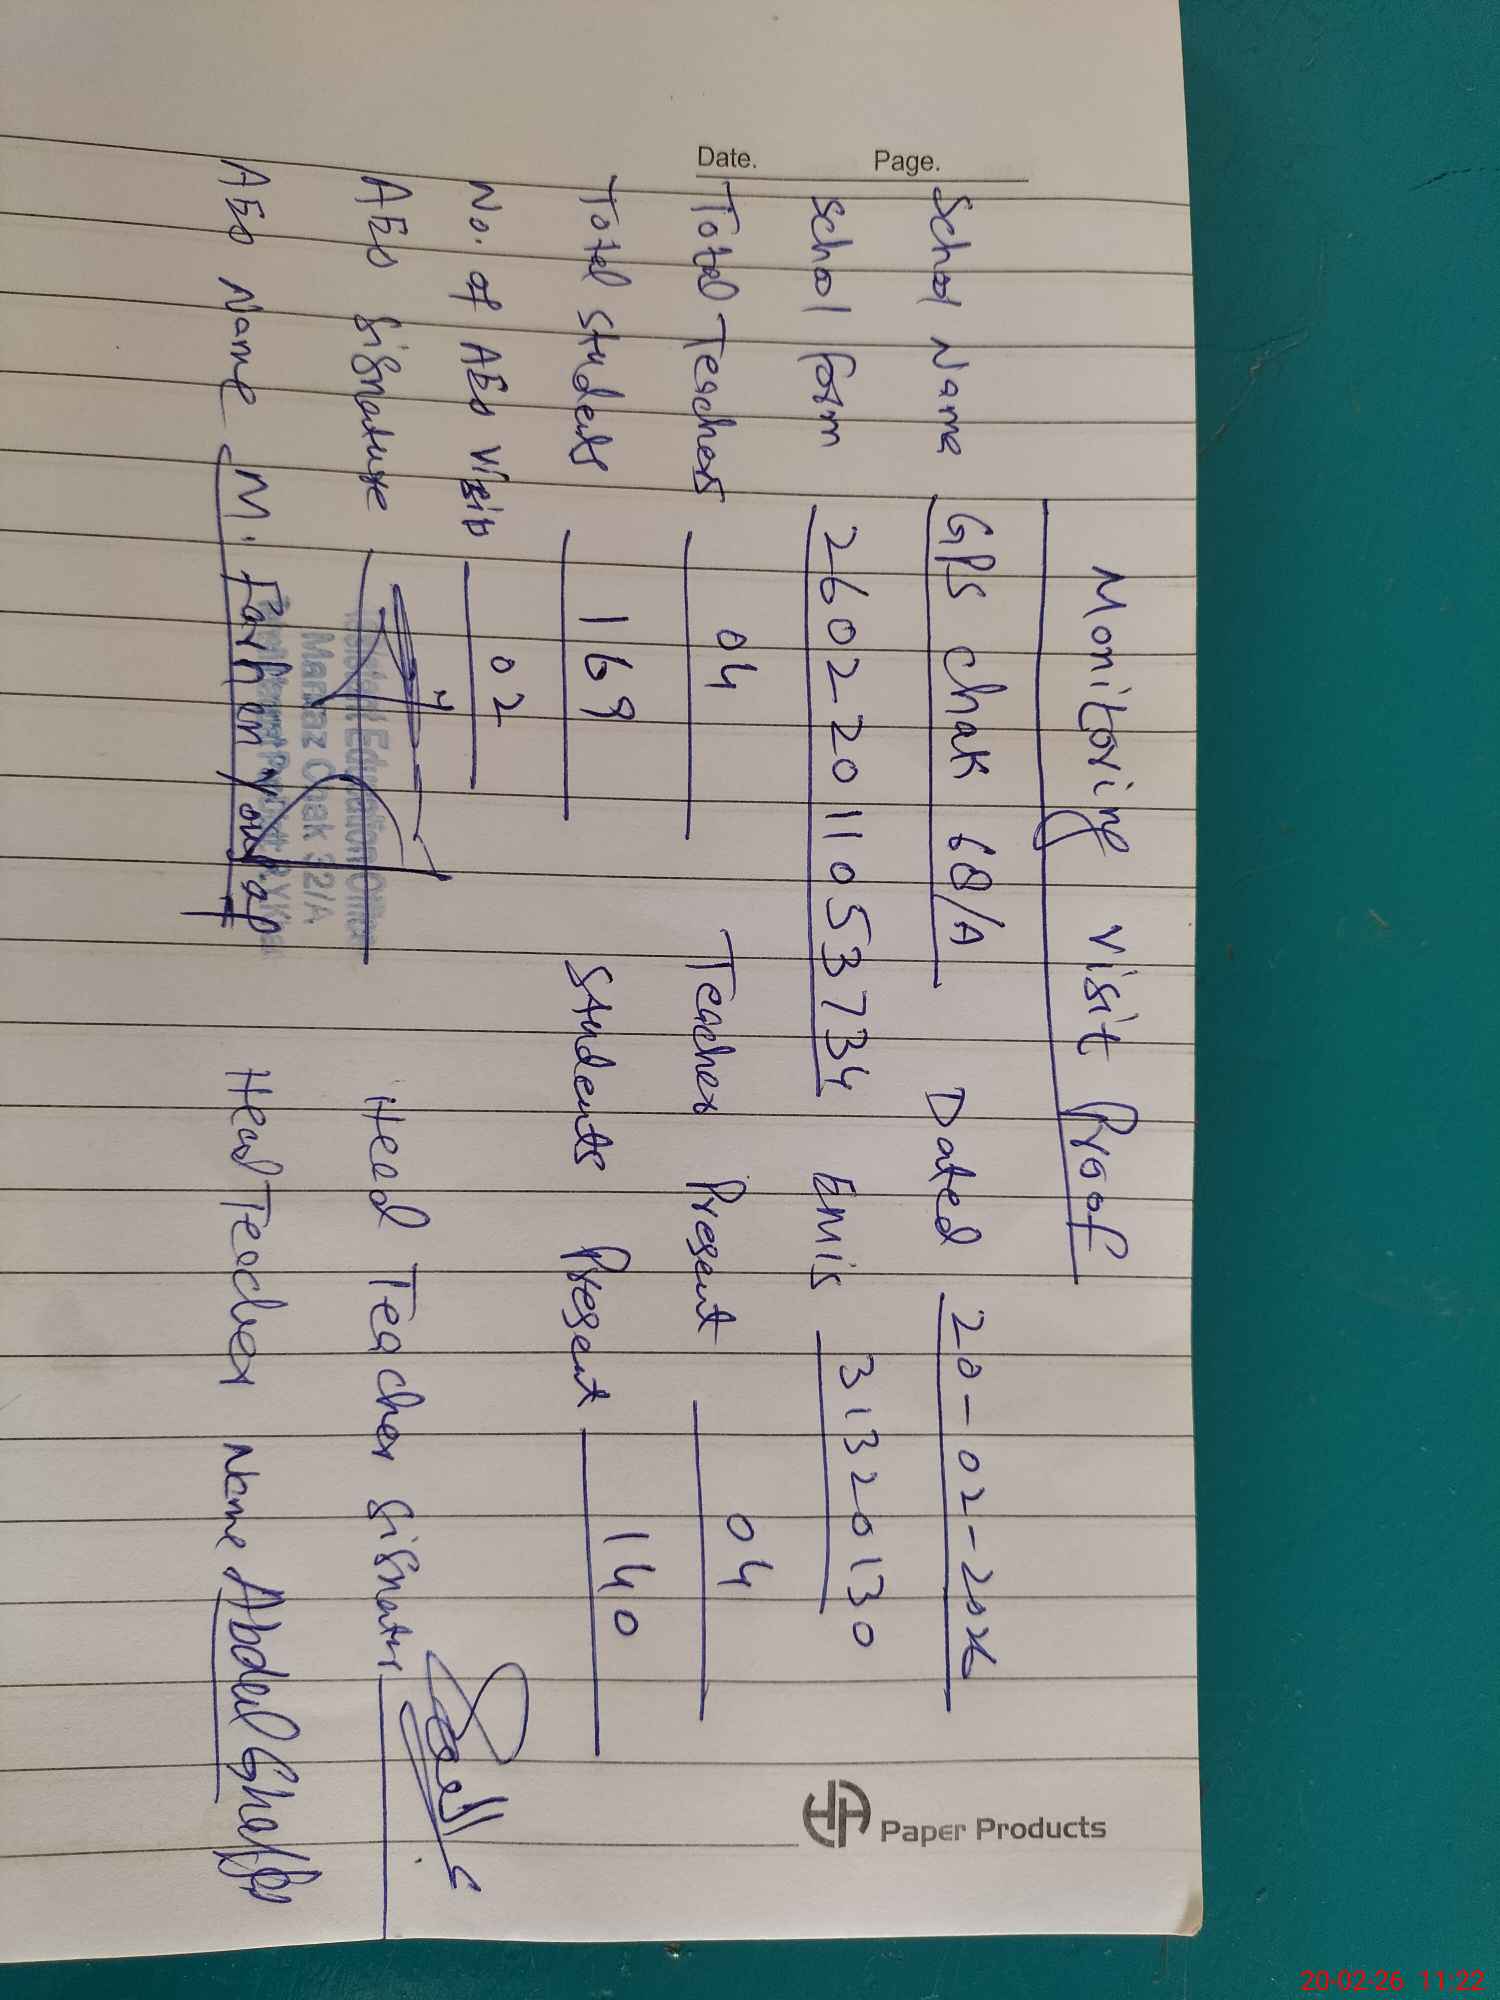 Date. Page.
Monitoring visit Proof
School Name GPS chak 68/A Dated 20-02-2026
School form 2602201105 3734 Emis 31320130
Total Teachers 04 Teacher Present 04
Total Students 169 Students Present 140
No. of AEO visits 02
AEO Signature Head Teacher Signature
AEO Name M. Farhan Yousaf Head Teacher Name Abdul Ghaffar
Education Officer
Markaz Chak 32/A
HA Paper Products
20-02-26 11:22